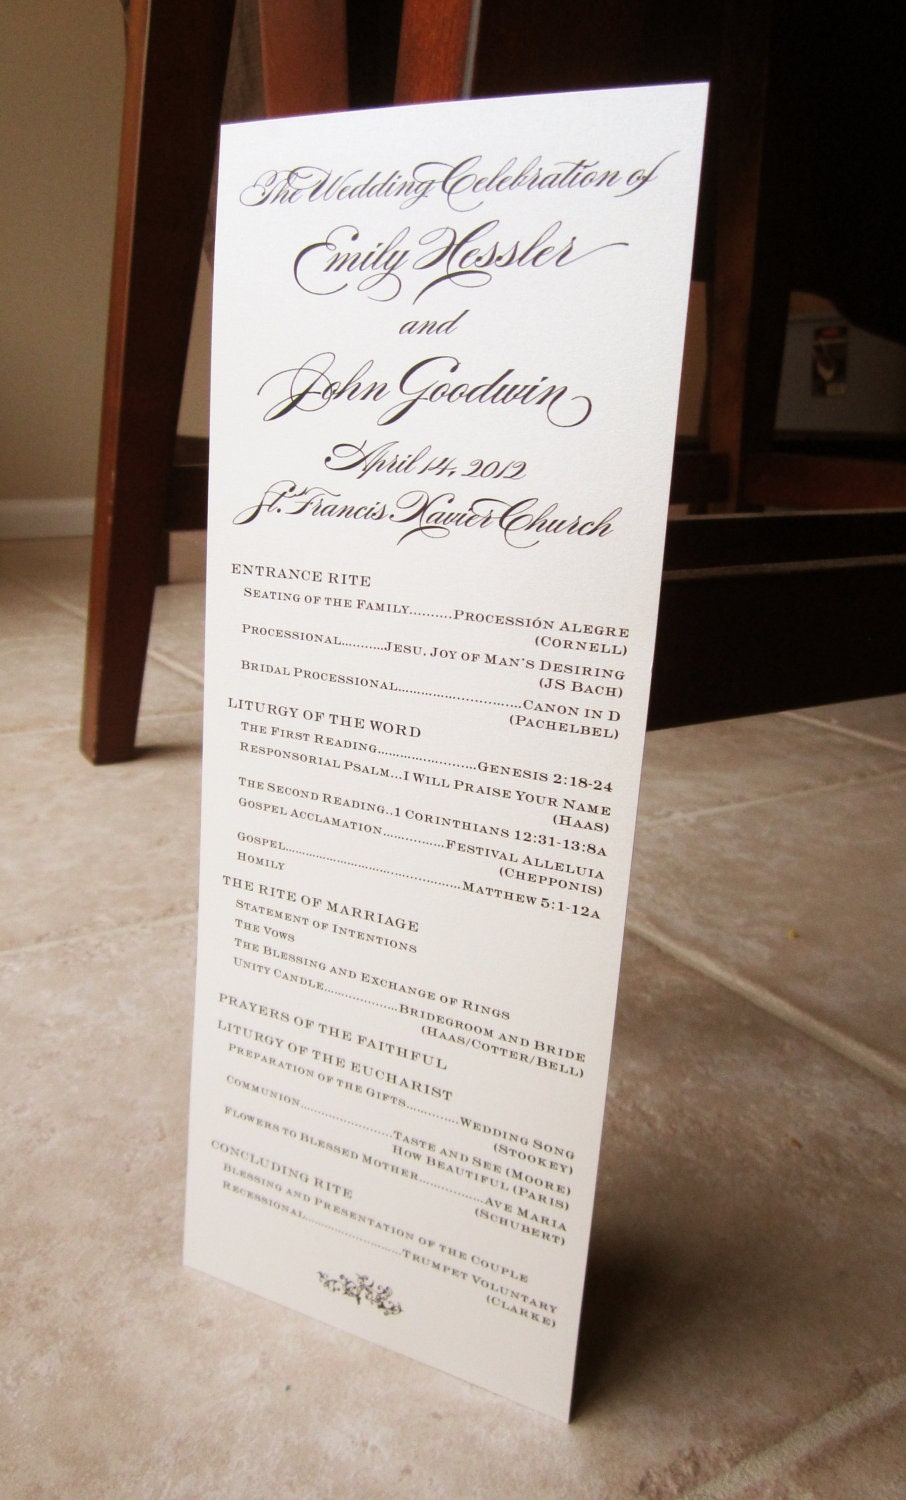 The Wedding Celebration of
Emily Hessler
and
John Goodwin
April 14, 2012
St. Francis Xavier Church
ENTRANCE RITE
Seating of the Family..........Procession Alegre
(Cornell)
Processional...........Jesu, Joy of Man's Desiring
(JS Bach)
Bridal Processional................................Canon in D
(Pachelbel)
LITURGY OF THE WORD
The First Reading.........................Genesis 2:18-24
Responsorial Psalm...I Will Praise Your Name
(Haas)
The Second Reading..1 Corinthians 12:31-13:8a
Gospel Acclamation................Festival Alleluia
(Chepponis)
Gospel..............................................Matthew 5:1-12a
Homily
THE RITE OF MARRIAGE
Statement of Intentions
The Vows
The Blessing and Exchange of Rings
Unity Candle....................Bridegroom and Bride
(Haas/Cotter/Bell)
PRAYERS OF THE FAITHFUL
LITURGY OF THE EUCHARIST
Preparation of the Gifts.............Wedding Song
(Stookey)
Communion.........................Taste and See (Moore)
How Beautiful (Paris)
Flowers to Blessed Mother.................Ave Maria
(Schubert)
CONCLUDING RITE
Blessing and Presentation of the Couple
Recessional..........................Trumpet Voluntary
(Clarke)